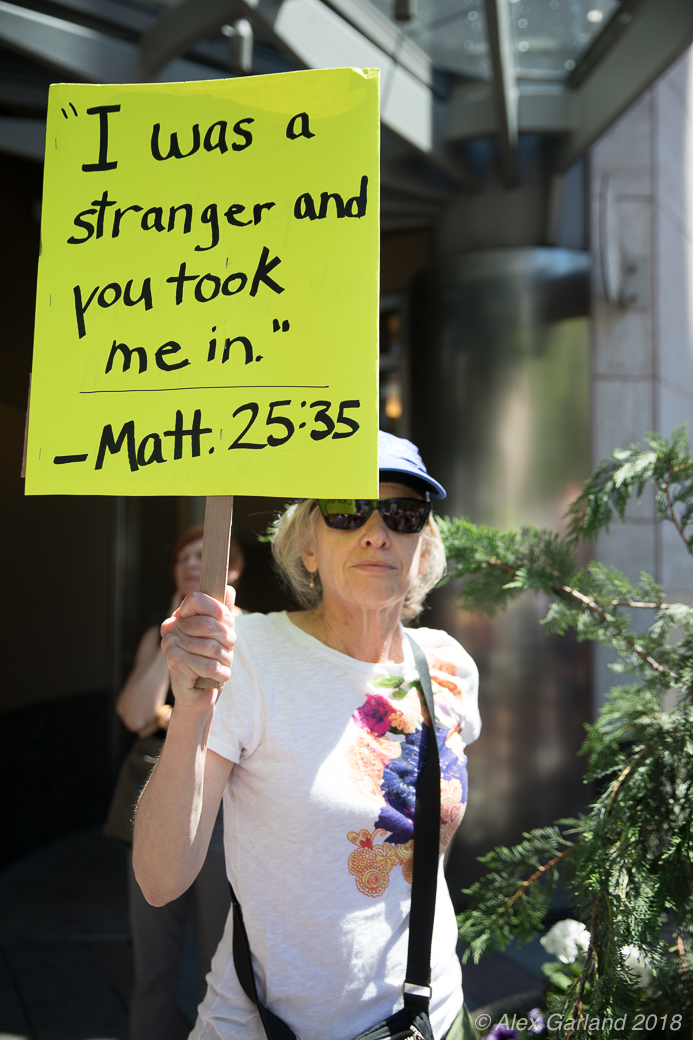 "I was a
stranger and
you took
me in."
-Matt. 25:35
© Alex Garland 2018